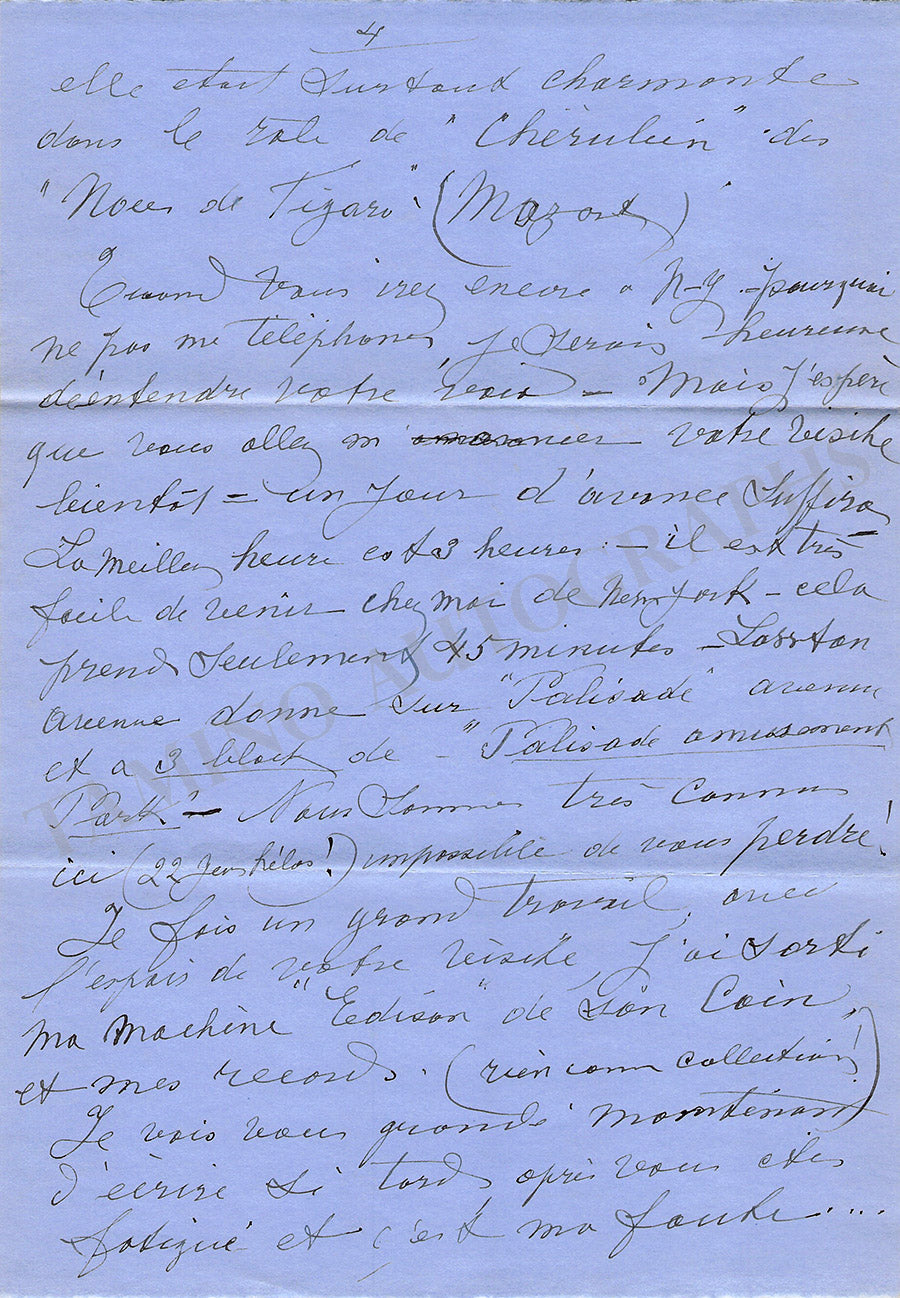 4
elle etait surtout charmante
dans le role de "Chérubin" des
"Noces de Figaro". (Mozart)
Quand vous irez encore a N-Y.- pourquoi
ne pas me téléphoner, je serais heureuse
d'entendre votre voix - Mais j'espère
que vous allez m' votre visite
bientôt = un jour d'avance suffira
La meilleu heure est 3 heures - il est très
facile de venir chez moi de New-York - cela
prend seulement 45 minutes -
avenue donne sur "Palisade" avenue
et a 3 block de - "Palisade amusement
Park" - Nous sommes très connus
ici (22 hélas!) impossible de vous perdre!
Je fais un grand travail, avec
l'espoir de votre visite, j'ai sorti
ma machine "Edison" de son coin,
et mes records. (rien comm collection!)
Je vais vous grondé maintenant
d'écrire si tard après vous etes
fatigué et c'est ma faute....
TAMINO AUTOGRAPHS